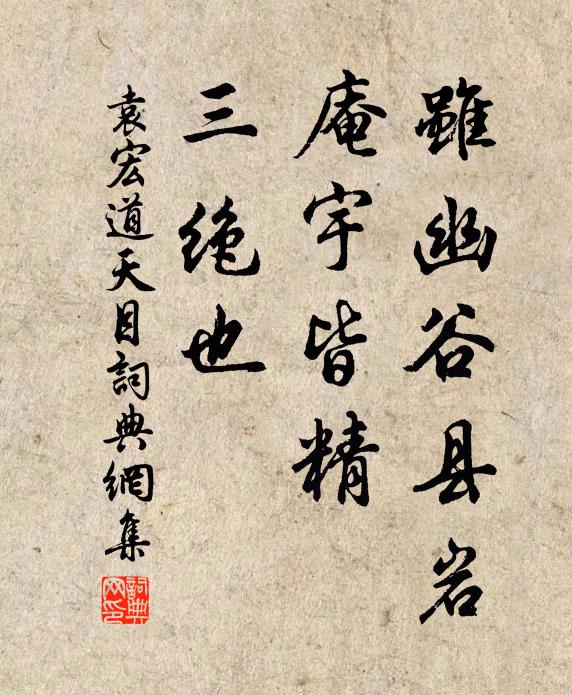 雖幽谷县岩
庵宇皆精
三絶也
袁宏道天目詞典網集
詞典网印